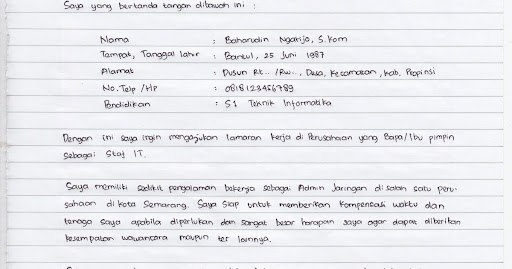 Saya yang bertanda tangan dibawah ini :
Nama : Baharudin Ngarijo, S.Kom
Tempat, Tanggal lahir : Bantul, 25 Juni 1987
Alamat : Dusun Rt.. /Rw.., Desa, Kecamatan, Kab, Propinsi
No. Telp /Hp : 0818123456789
Pendidikan : S1 Teknik Informatika
Dengan ini saya ingin mengajukan lamaran kerja di Perusahaan yang Bapa/Ibu pimpin
sebagai Staf IT.
Saya memiliki sedikit pengalaman bekerja sebagai Admin Jaringan di salah satu peru-
sahaan di kota Semarang. Saya siap untuk memberikan kompensasi waktu dan
tenaga saya apabila diperlukan dan sangat besar harapan saya agar dapat diberikan
kesempatan wawancara maupun tes lainnya.